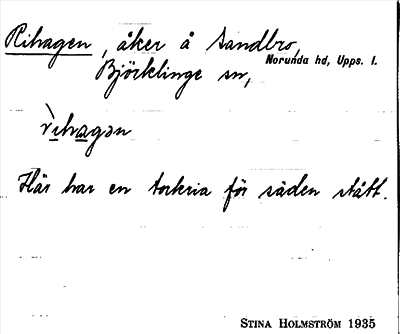 Rihagen, åker å Sandbro,
Norunda hd, Upps. l.
Björklinge sn,
rihagən
Här har en torkria för säden stått.
STINA HOLMSTRÖM 1935